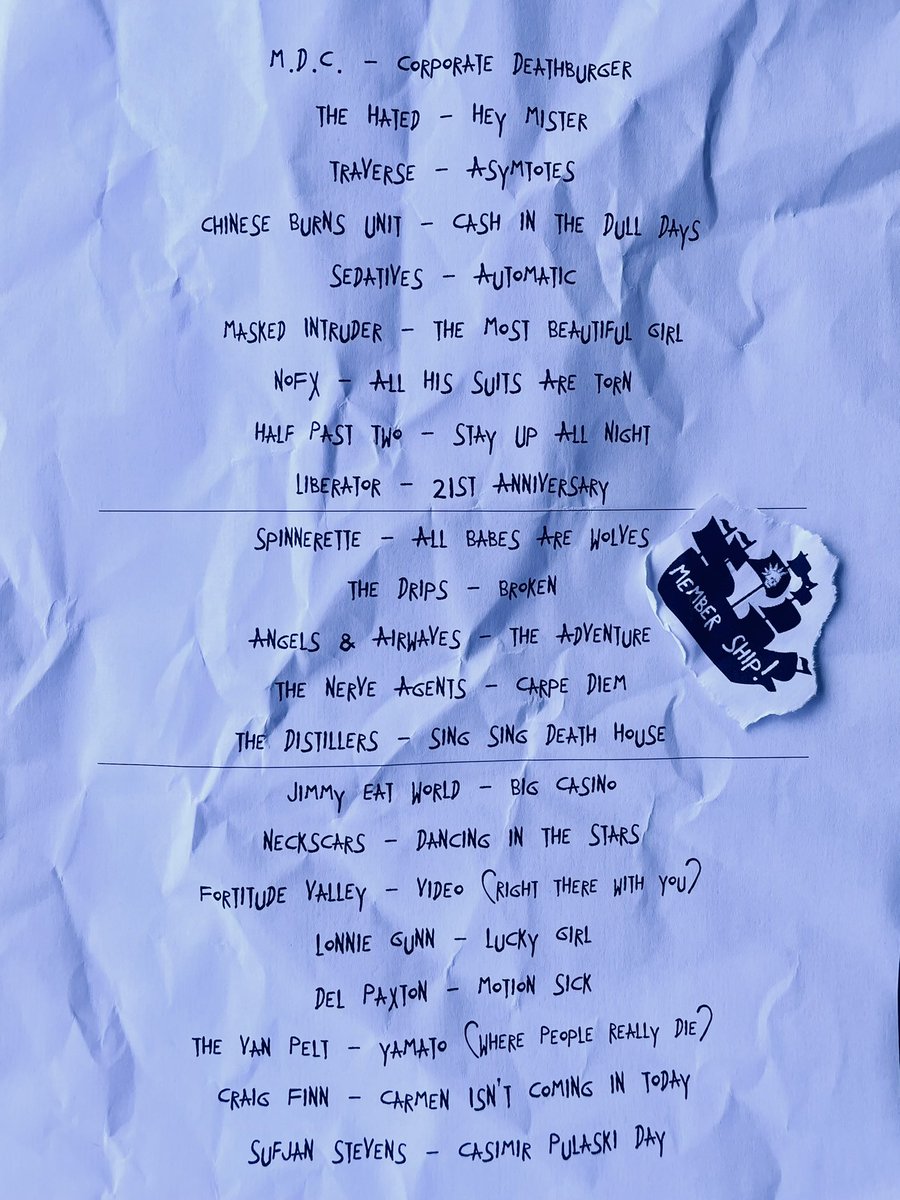 M.D.C. – CORPORATE DEATHBURGER
THE HATED – HEY MISTER
TRAVERSE – ASYMTOTES
CHINESE BURNS UNIT – CASH IN THE DULL DAYS
SEDATIVES – AUTOMATIC
MASKED INTRUDER – THE MOST BEAUTIFUL GIRL
NOFX – ALL HIS SUITS ARE TORN
HALF PAST TWO – STAY UP ALL NIGHT
LIBERATOR – 21ST ANNIVERSARY
SPINNERETTE – ALL BABES ARE WOLVES
THE DRIPS – BROKEN
ANGELS & AIRWAVES – THE ADVENTURE
MEMBER SHIP!
THE NERVE AGENTS – CARPE DIEM
THE DISTILLERS – SING SING DEATH HOUSE
JIMMY EAT WORLD – BIG CASINO
NECKSCARS – DANCING IN THE STARS
FORTITUDE VALLEY – VIDEO (RIGHT THERE WITH YOU)
LONNIE GUNN – LUCKY GIRL
DEL PAXTON – MOTION SICK
THE VAN PELT – YAMATO (WHERE PEOPLE REALLY DIE)
CRAIG FINN – CARMEN ISN'T COMING IN TODAY
SUFJAN STEVENS – CASIMIR PULASKI DAY